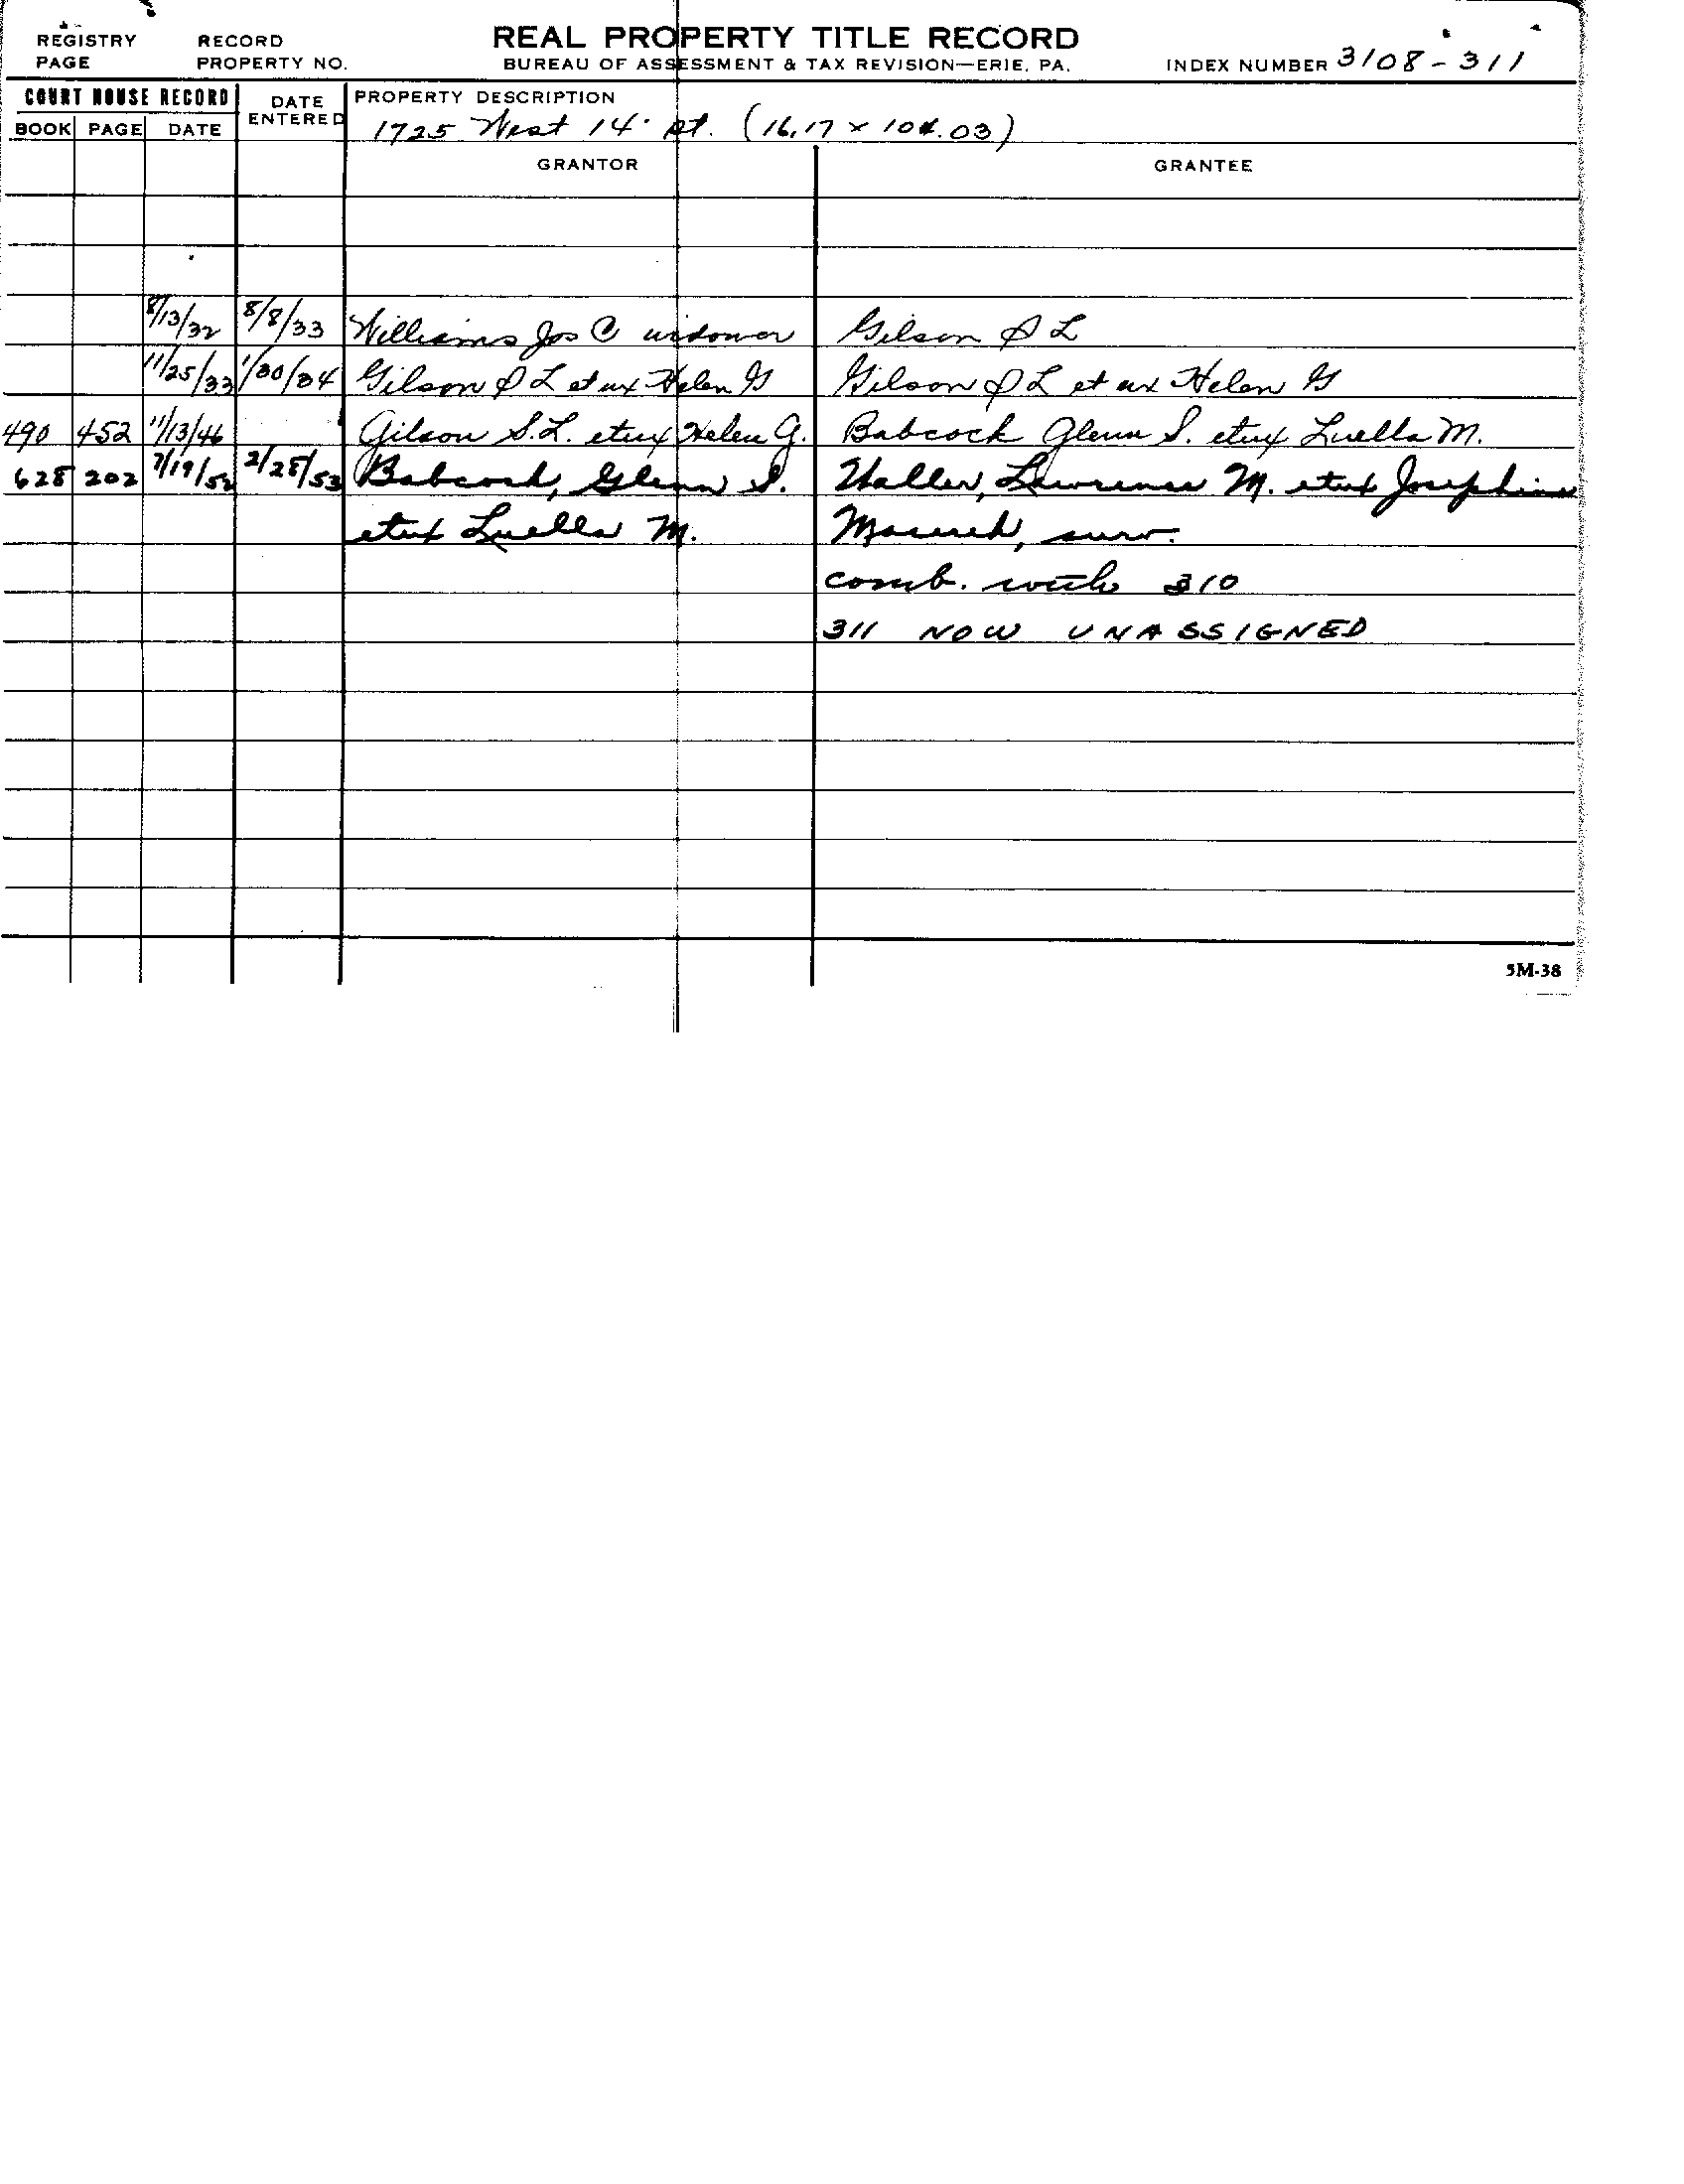 REGISTRY PAGE RECORD PROPERTY NO. REAL PROPERTY TITLE RECORD
BUREAU OF ASSESSMENT & TAX REVISION—ERIE, PA. INDEX NUMBER 3108-311
COURT HOUSE RECORD DATE ENTERED PROPERTY DESCRIPTION
BOOK PAGE DATE 1725 West 14' St. (16.17 x 104.03)
GRANTOR GRANTEE
8/13/32 8/8/33 Williams Jos C widower Gilson S L
11/25/33 1/30/34 Gilson S L et ux Helen G Gilson S L et ux Helen G
490 452 11/13/46 Gilson S.L. etux Helen G. Babcock Glenn S. etux Luella M.
628 202 7/19/52 2/28/53 Babcock, Glenn S. Haller, Lawrence M. etux Josephine
etux Luella M. surv.
comb. with 310
311 NOW UNASSIGNED
5M-38